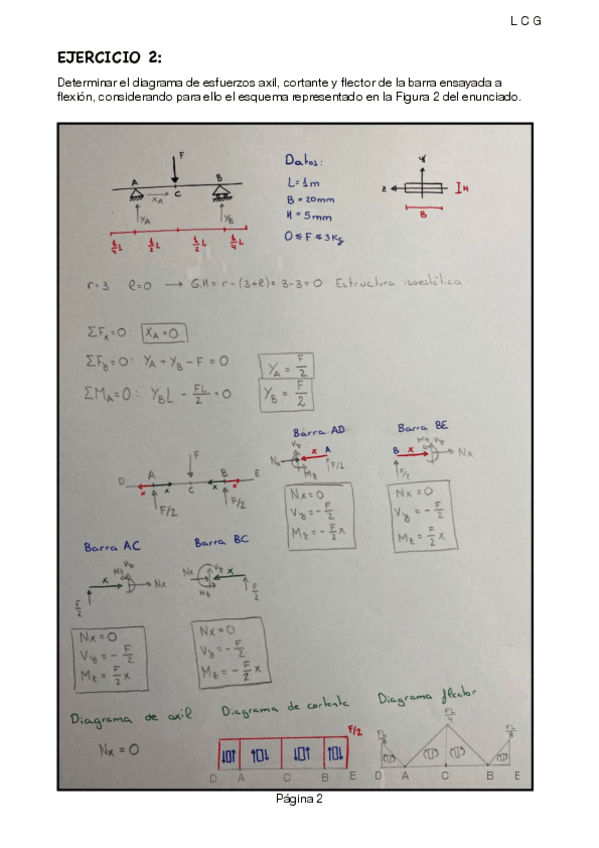 L C G
EJERCICIO 2:
Determinar el diagrama de esfuerzos axil, cortante y flector de la barra ensayada a
flexión, considerando para ello el esquema representado en la Figura 2 del enunciado.
F
A
B
C
X_A
Y_A
Y_B
1/4 L
1/2 L
1/2 L
1/4 L
Datos:
L = 1m
B = 20mm
H = 5mm
0 ≤ F ≤ 3Kg
Y
Z
H
B
r=3 l=0 → G.H = r - (3+l) = 3-3=0 Estructura isostática
ΣFx=0: X_A=0
ΣFy=0: Y_A + Y_B - F = 0 Y_A = F/2
ΣM_A=0: Y_B L - FL/2 = 0 Y_B = F/2
D A C B E
F
x x x x
F/2 F/2
Barra AD
Nx Vy Mz x A F/2
Nx=0
Vy=-F/2
Mz=-F/2 x
Barra BE
B x Mz Vy Nx F/2
Nx=0
Vy=-F/2
Mz=F/2 x
Barra AC
x Mz Vy Nx
F/2
Nx=0
Vy=-F/2
Mz=F/2 x
Barra BC
Nx Vy x
Mz F/2
Nx=0
Vy=-F/2
Mz=-F/2 x
Diagrama de axil
Nx=0
Diagrama de cortante
F/2
D A C B E
Diagrama flector
FL/4
FL/8
D A C B E
Página 2